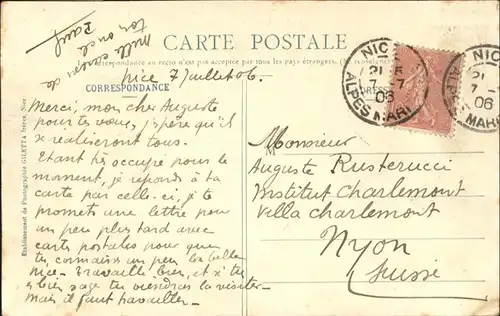 Mille caresses de
ton oncle
Paul
CARTE POSTALE
La correspondance au recto n'est pas acceptée par tous les pays étrangers. (Se renseigner
CORRESPONDANCE
Nice 7 Juillet 06.
Merci, mon cher Auguste
pour tes voeux, j'espère qu'ils
se realiseront tous.
Etant très occupé pour le
moment, je réponds à ta
carte par celle-ci, je te
promets une lettre pour
un peu plus tard avec
cartes postales pour que
tu connaisses un peu la belle
Nice - Travaille bien, et si tu
es bien sage tu viendras la visiter -
Mais il faut travailler -
Etablissement de Photographie GILETTA frères, Nice
NICE
7 - 7
06
ALPES MARI
NIC
7 -
06
ALPES MAR
Monsieur
Auguste Rusterucci
Institut Charlemont
Villa Charlemont
Nyon
Suisse